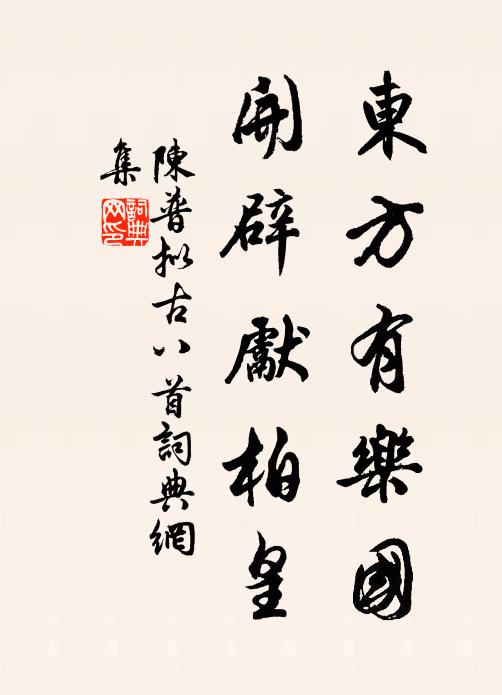 東方有樂國
開辟獻柏皇
陳普拟古八首詞典網
集
詞典网印